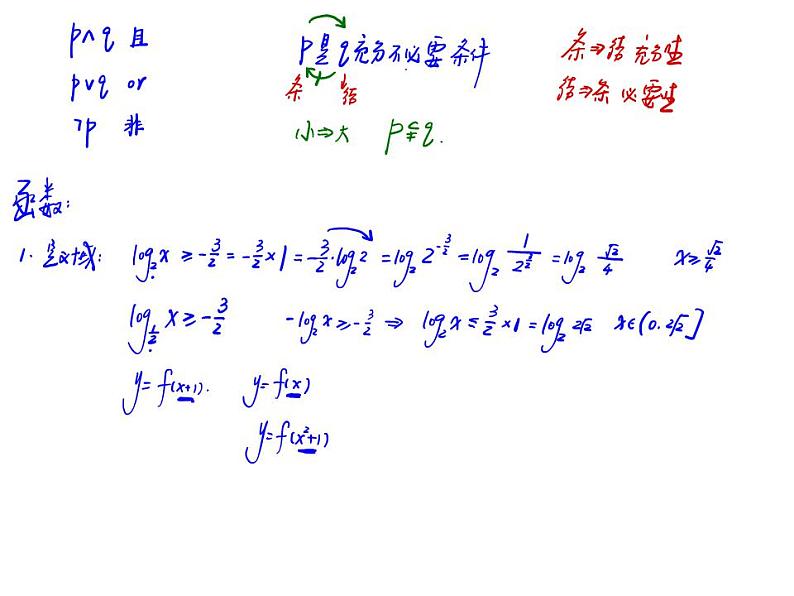 p∧q 且
p是q充分不必要条件
条⇒结 充分性
p∨q or
条 结
结⇒条 必要性
¬p 非
小⇒大 p⫋q.
函数:
1. 定义域: log₂x ≥ -3/2 = -3/2×1 = -3/2·log₂2 = log₂2^(-3/2) = log₂ 1/2^(3/2) = log₂ √2/4 x≥√2/4
log_(1/2) x ≥ -3/2 -log₂x ≥ -3/2 ⇒ log₂x ≤ 3/2×1 = log₂2√2 x∈(0.2√2]
y=f(x+1). y=f(x)
y=f(x²+1)